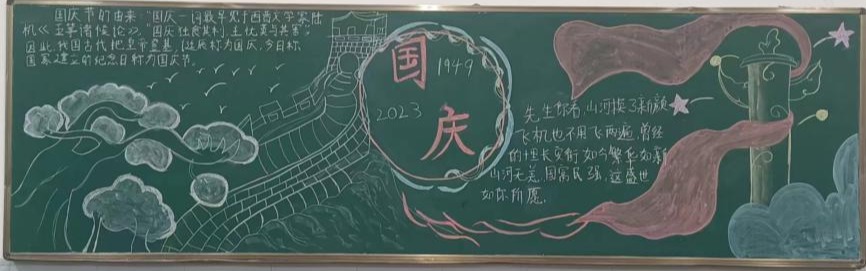 国庆节的由来:"国庆"一词最早见于西晋文学家陆
机《五等诸侯论》,"国庆独飨其利,主忧莫与其害"
因此,我国古代把皇帝登基、诞辰称为国庆,今日称
国家建立的纪念日称为国庆节。
国庆
1949
2023
先生你看,山河换了新颜
飞机也不用飞两遍,曾经
的十里长安街如今繁华如新
山河无恙,国富民强,这盛世
如你所愿。